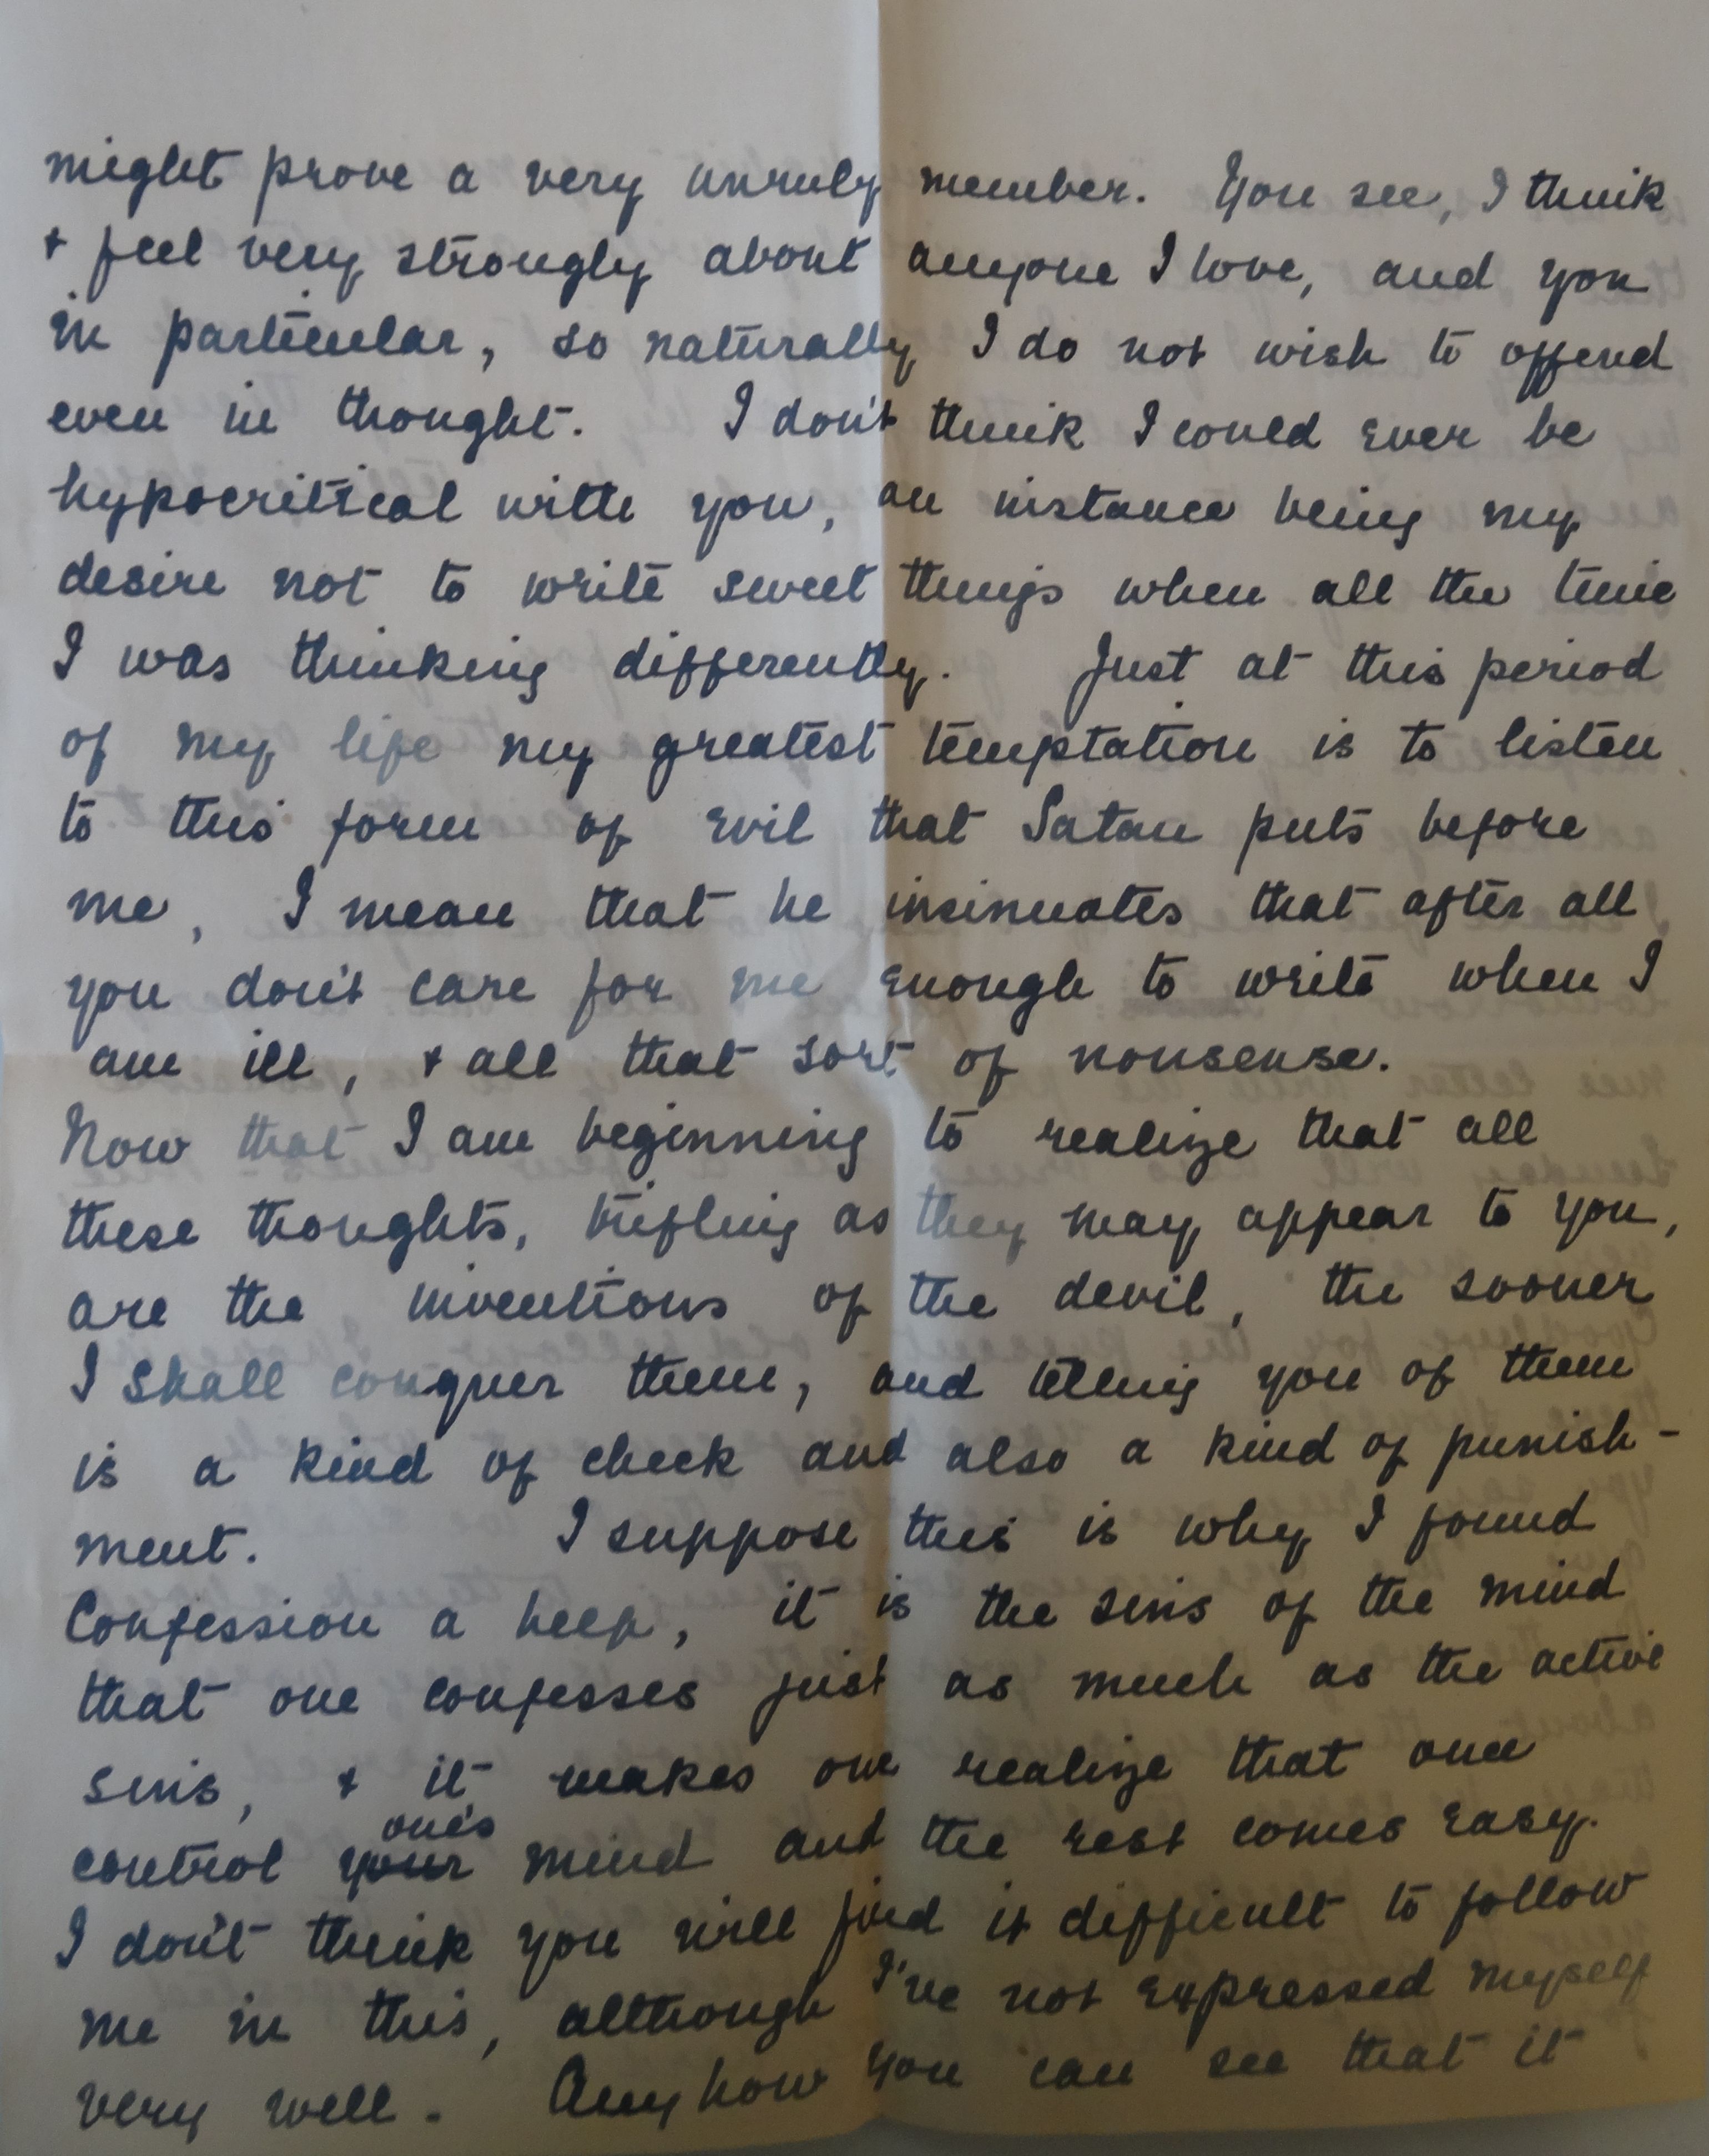 might prove a very unruly member. You see, I think
+ feel very strongly about anyone I love, and you
in particular, so naturally I do not wish to offend
even in thought. I don't think I could ever be
hypocritical with you, an instance being my
desire not to write sweet things when all the time
I was thinking differently. Just at this period
of my life my greatest temptation is to listen
to this form of evil that Satan puts before
me, I mean that he insinuates that after all
you don't care for me enough to write when I
am ill, + all that sort of nonsense.
Now that I am beginning to realize that all
these thoughts, trifling as they may appear to you,
are the inventions of the devil, the sooner
I shall conquer them, and telling you of them
is a kind of check and also a kind of punish-
ment. I suppose this is why I found
Confession a help, it is the sins of the mind
that one confesses just as much as the active
sins, + it makes one realize that once
control your one's mind and the rest comes easy.
I don't think you will find it difficult to follow
me in this, although I've not expressed myself
very well. Anyhow you can see that it